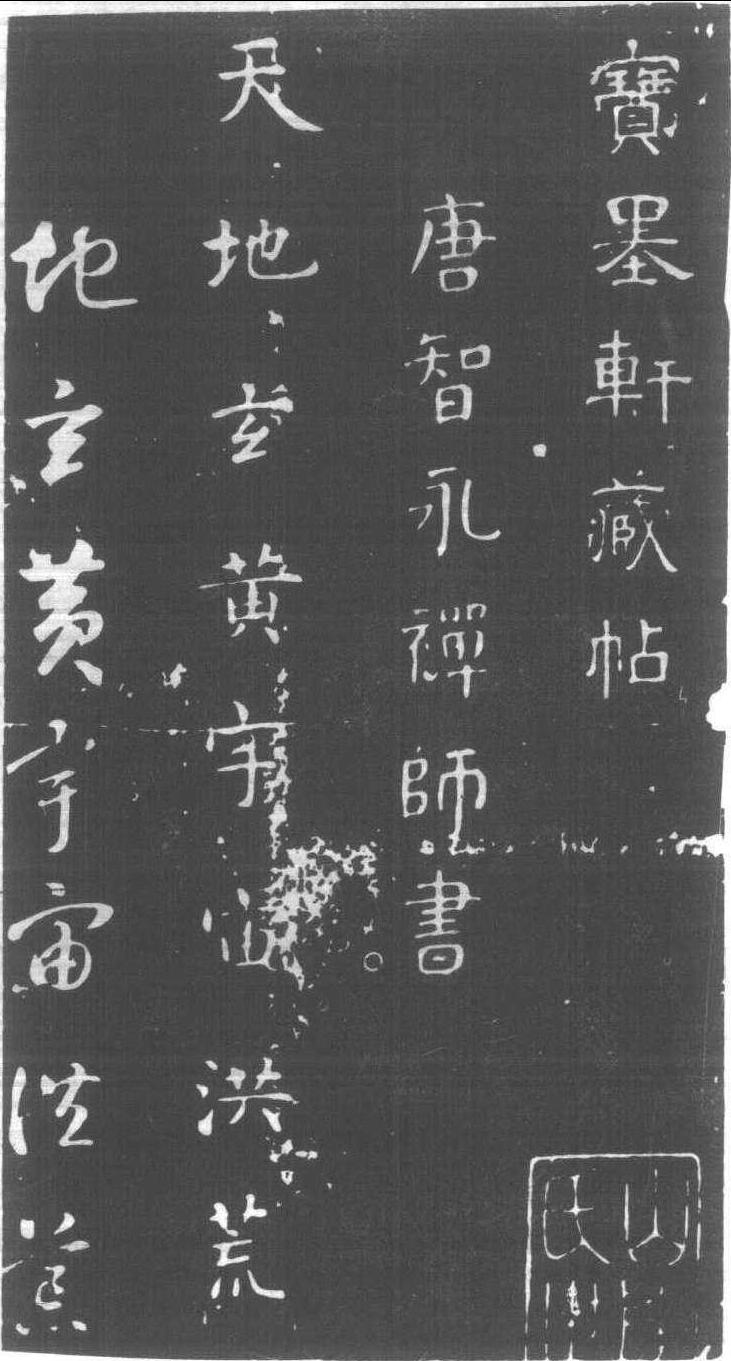 寶墨軒藏帖
唐智永禪師書
天地玄黃宇宙洪荒
地玄黃宇宙洪荒